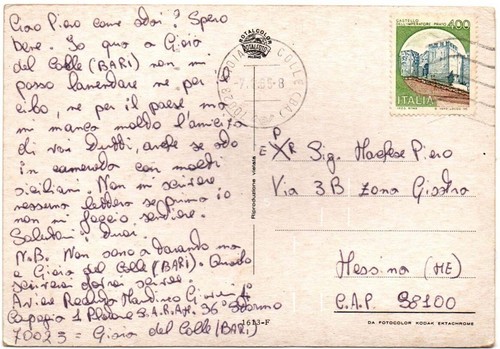 Ciao Piero come stai? Spero
bene. Io qua a Gioia
del Colle (BARI) non mi
posso lamentare ne per il
cibo, ne per il paese ma
mi manca molto l'amicizia
di voi tutti, anche se sto
in camerata con molti
siciliani. Non mi scrivere
nessuna lettera se prima io
non mi faccio sentire.
Saluta i tuoi.
N.B. Non sono a Taranto ma
a Gioia del Colle (BARI). Quando
scriverai dovrai scrivere:
Aviere
Compagnia 1 Plotone S.A.R.A.M. 36° Stormo
70023 = Gioia del Colle (BARI)
ROTALCOLOR
ROTALFOTO
GIOIA DEL COLLE (BA)
CASTELLO
DELL'IMPERATORE · PRATO
400
ITALIA
Riproduzione vietata
E P
X R Sig. Maefese Piero
Via 3B Zona Giostra
Messina (ME)
C.A.P. 98100
1613-F
DA FOTOCOLOR KODAK EKTACHROME